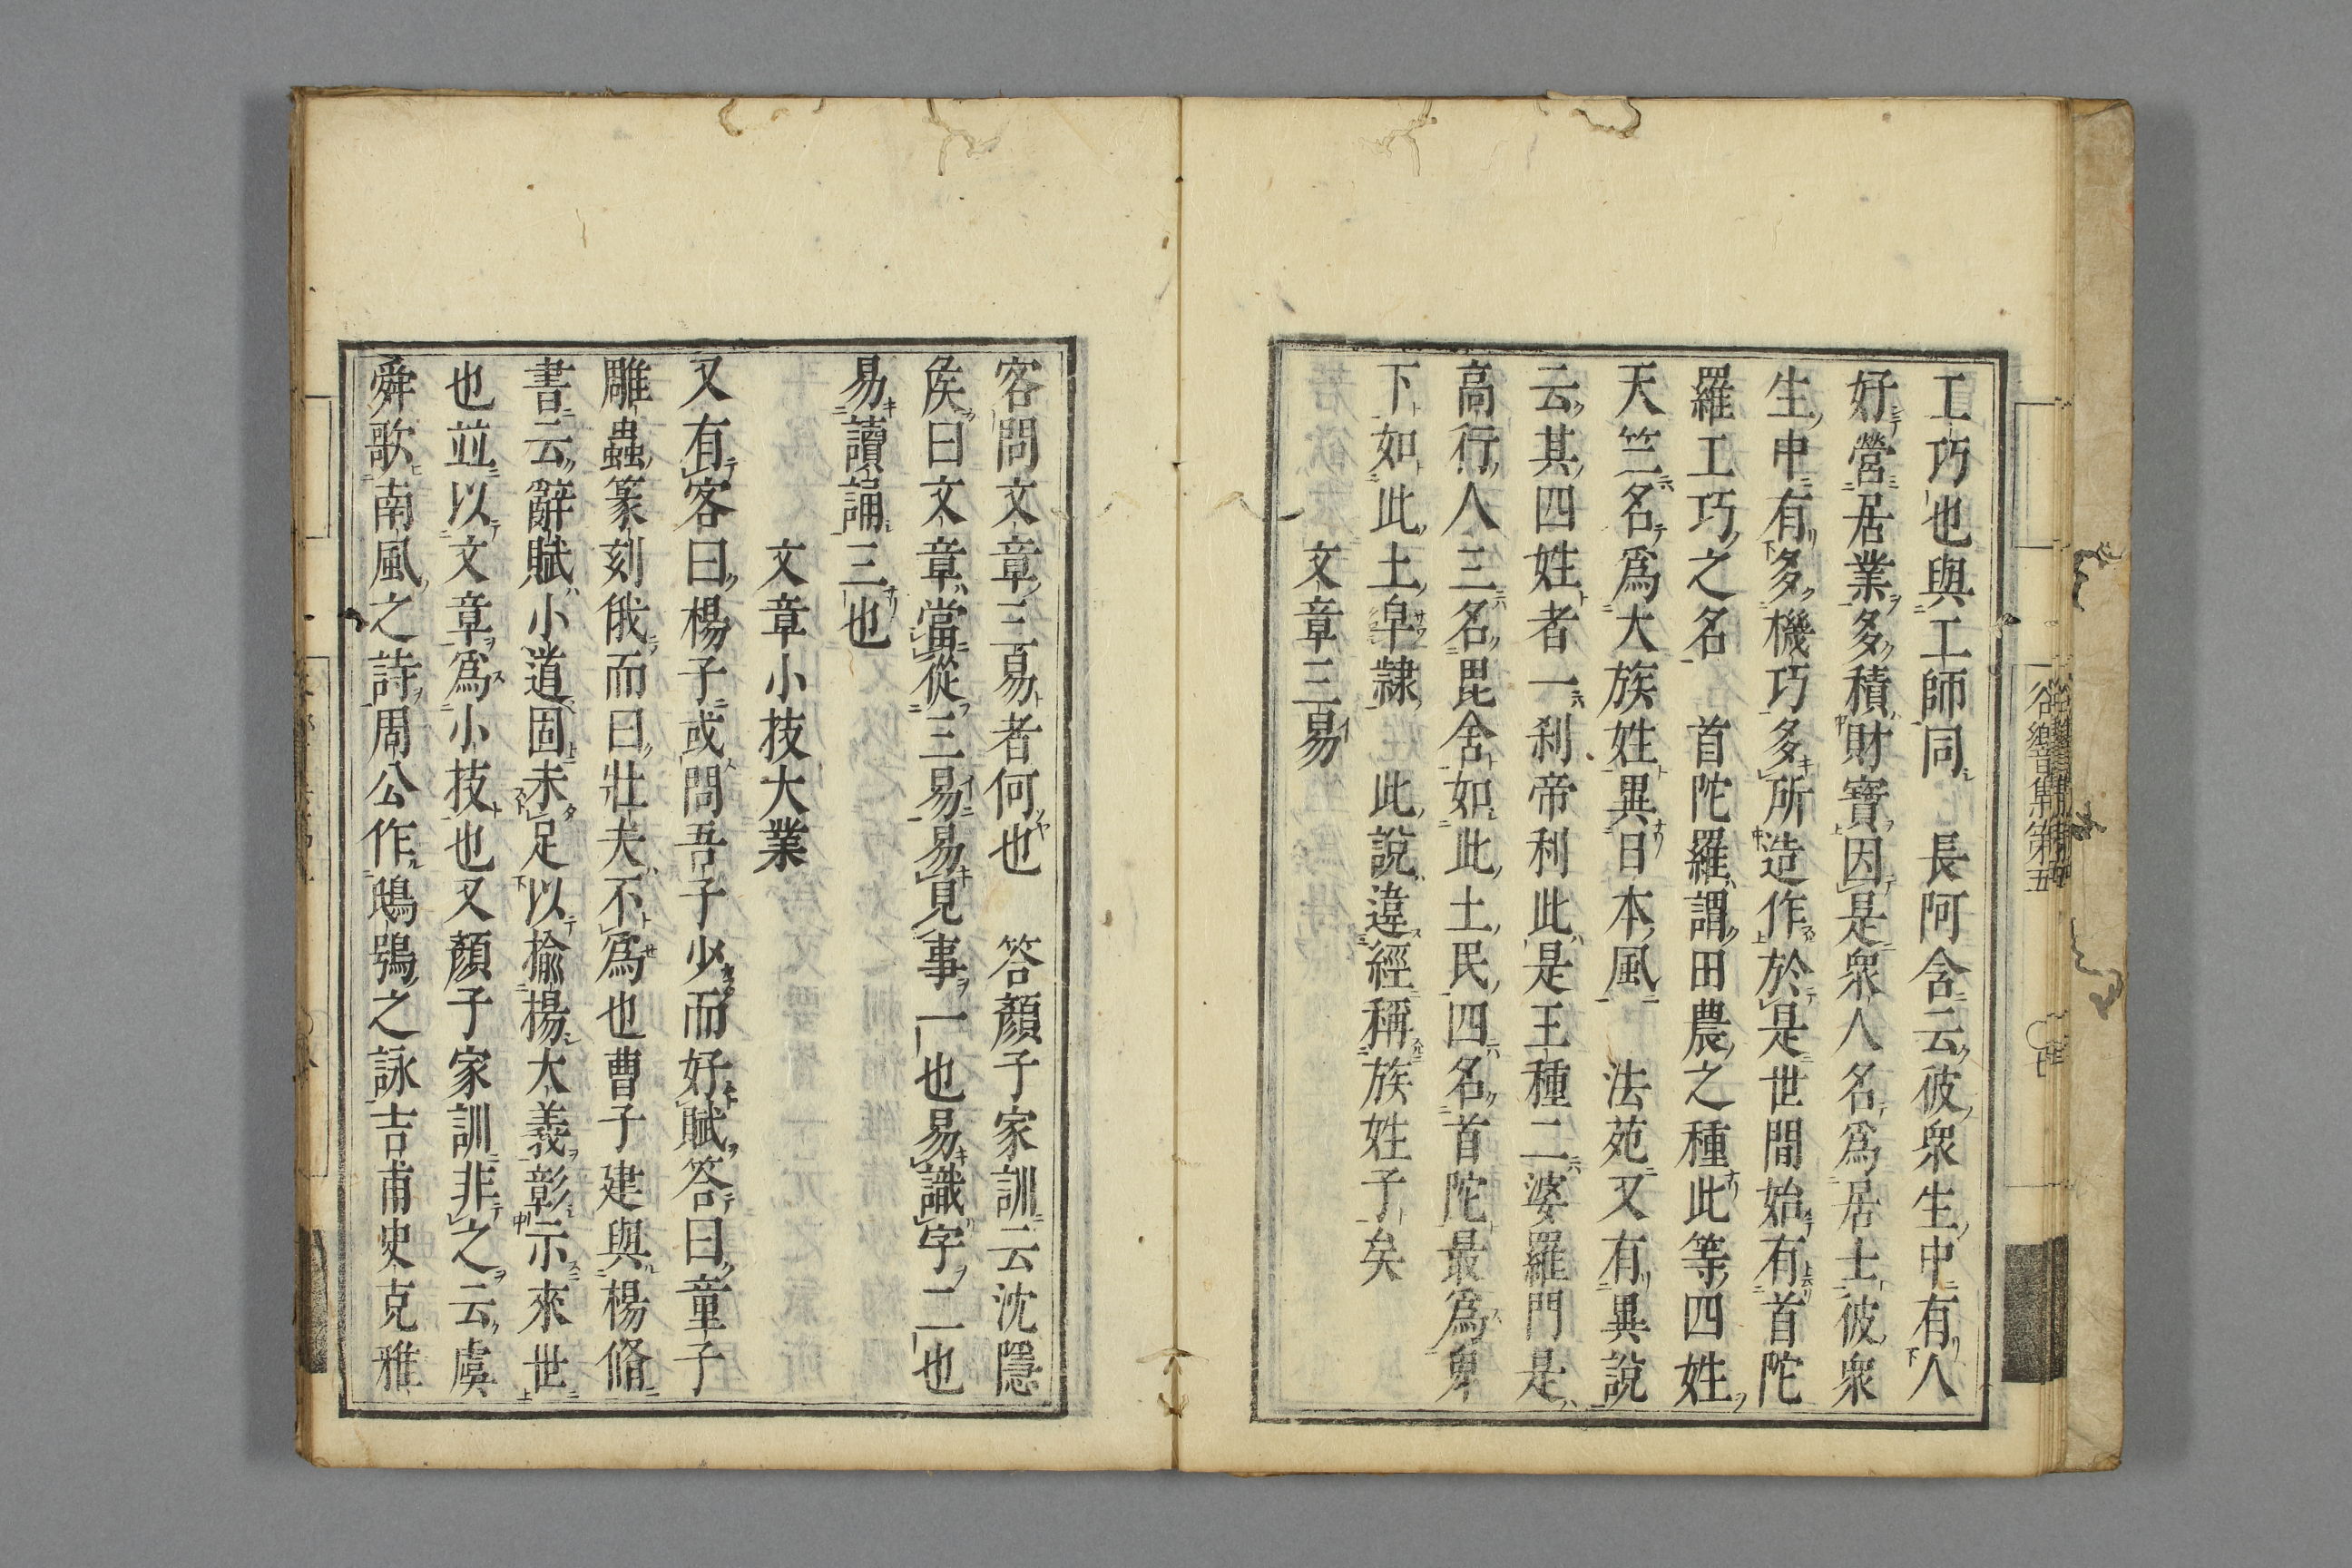 工巧也與工師同　長阿含云彼衆生中有人
好營居業多積財寶因是衆人名爲居士彼衆
生中有多機巧多所造作於是世間始有首陀
羅工巧之名　首陀羅謂田農之種此等四姓
天竺名爲大族姓異日本風　法苑又有異說
云其四姓者一刹帝利此是王種二婆羅門是
高行人三名毘舍如此土民四名首陀最爲卑
下如此土皁隷　此說違經稱族姓子矣
文章三易
客問文章三易者何也　答顏子家訓云沈隱
矦曰文章當從三易易見事一也易識字二也
易讀誦三也
文章小技大業
又有客曰楊子或問吾子少而好賦答曰童子
雕蟲篆刻俄而曰壯夫不爲也曹子建與楊脩
書云辭賦小道固未足以揄楊大義彰示來世
也並以文章爲小技也又顏子家訓非之云虞
舜歌南風之詩周公作鴟鴞之詠吉甫史克雅
谷響集第五
〇七